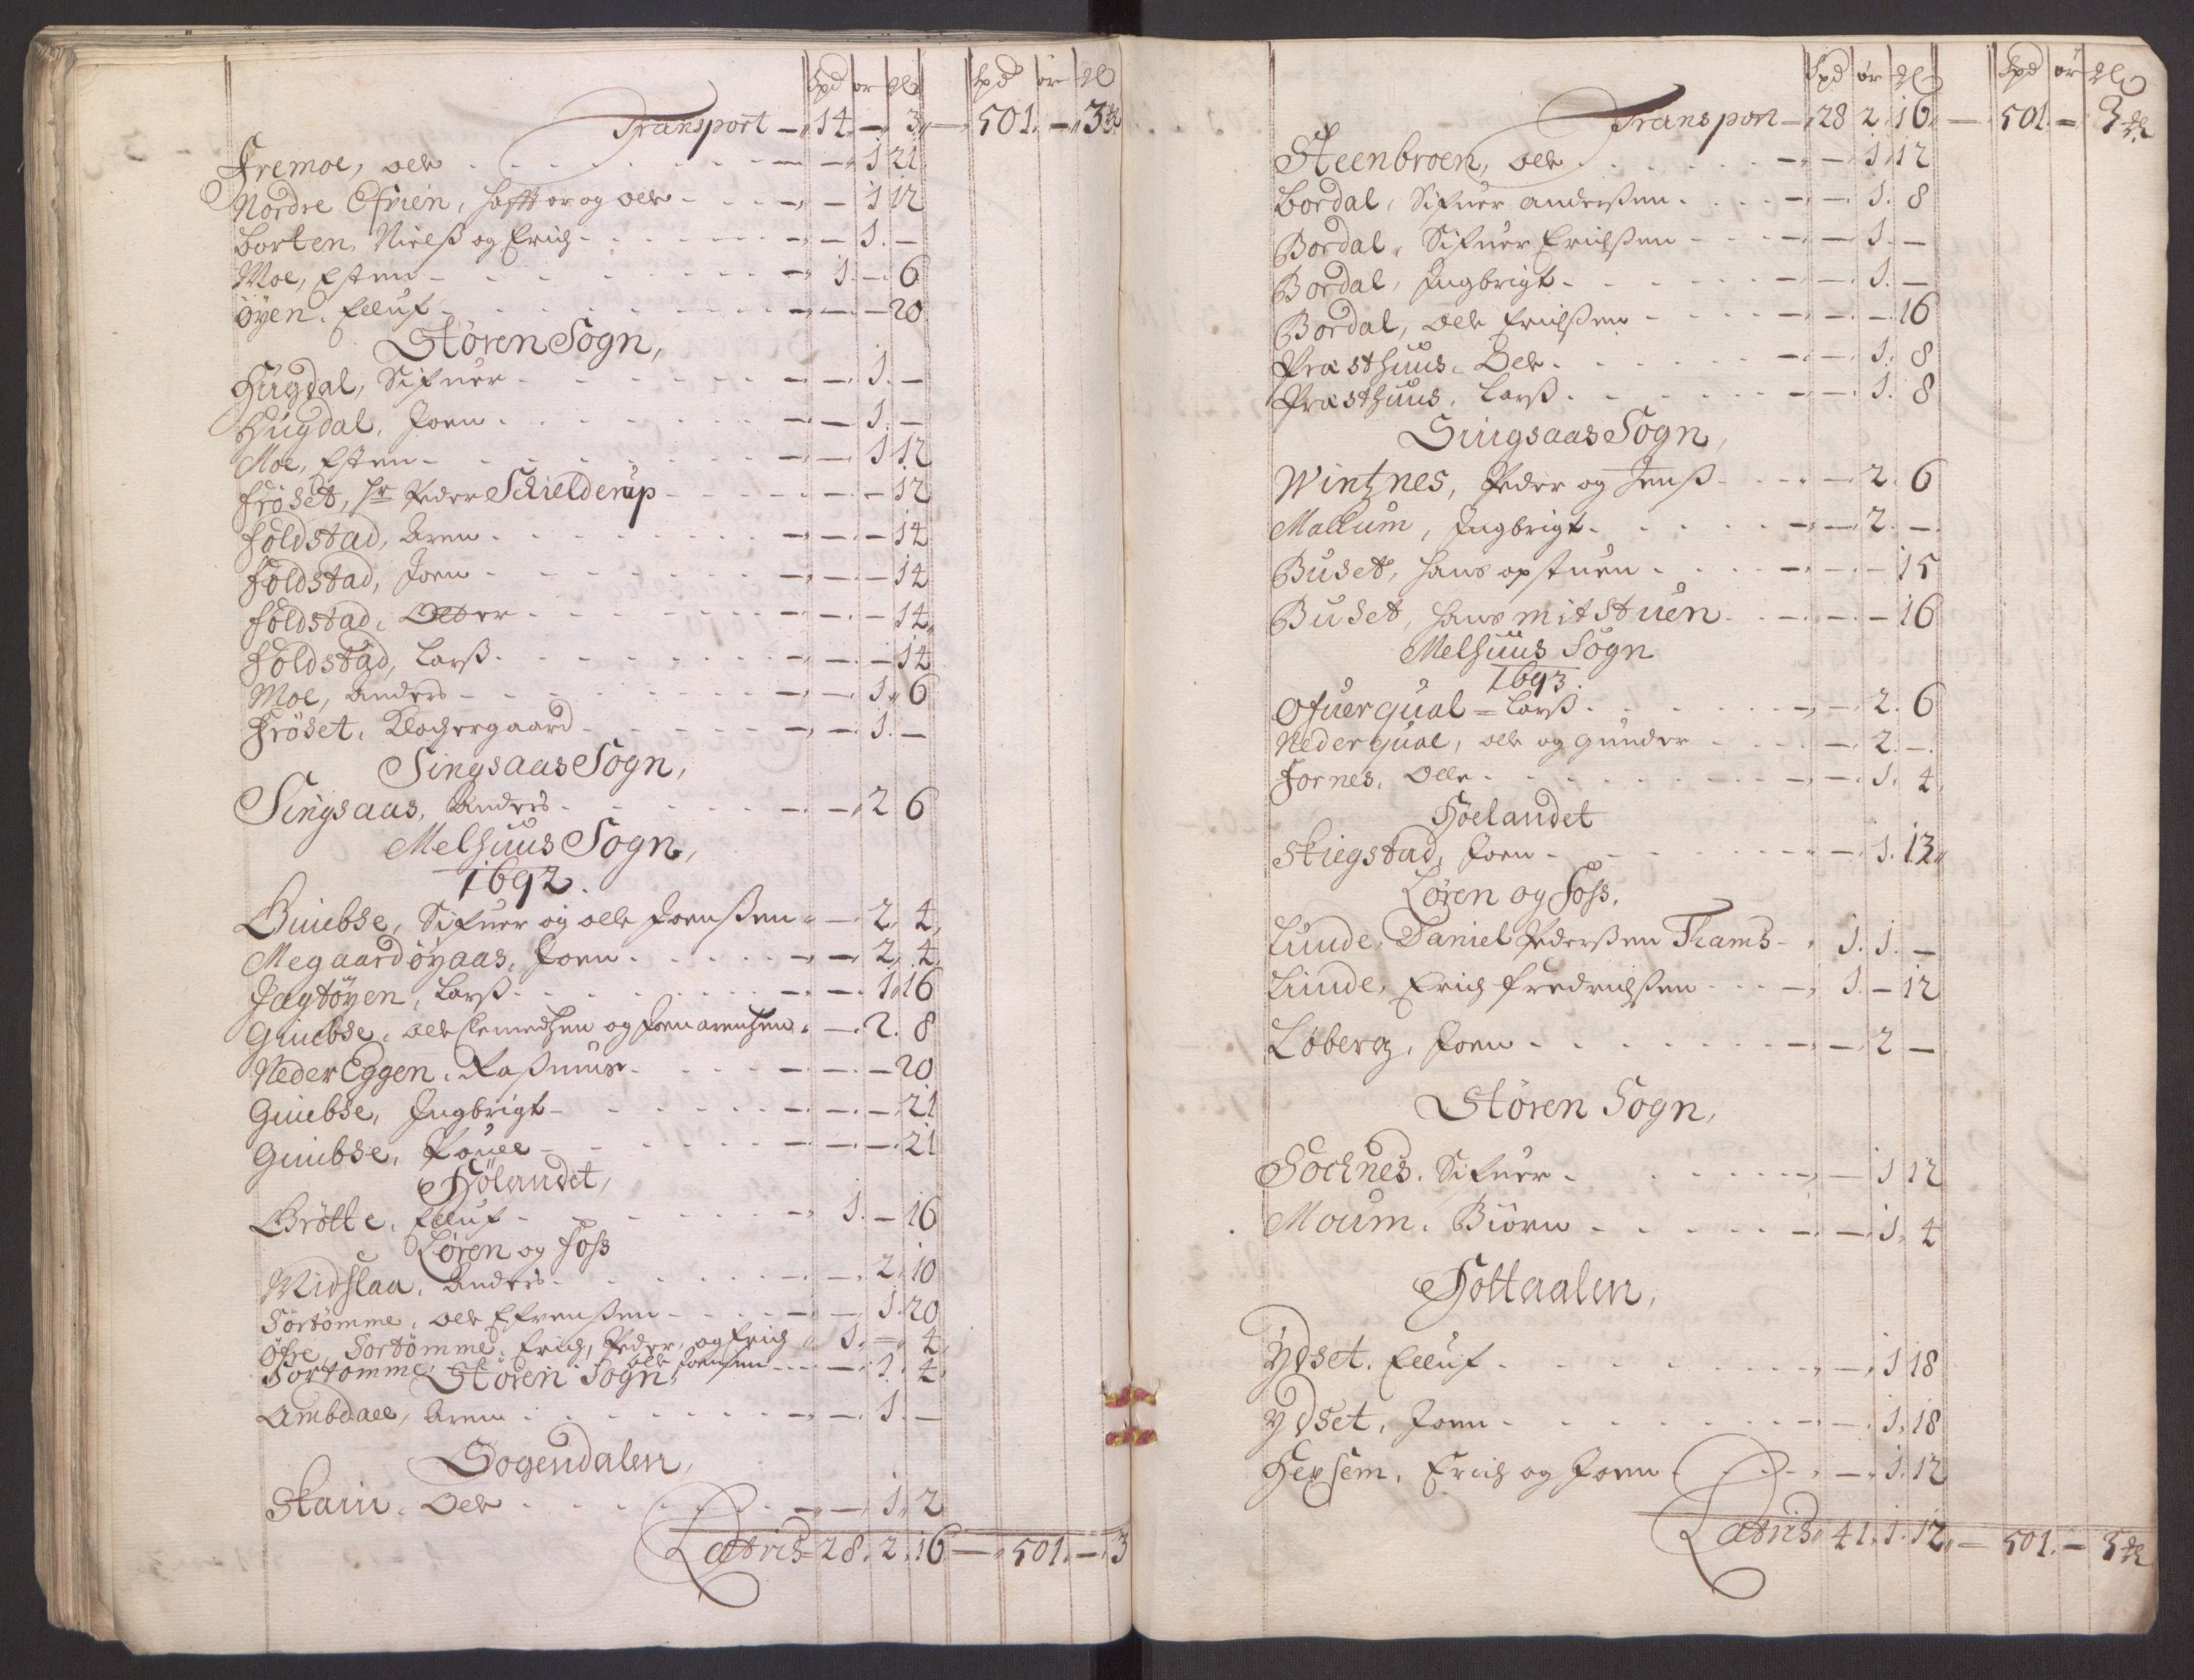 Spd ør Spd ør
Transport — 14. — 3. — 501. — 3
Fremoe, Ole — 1 21
Nordre Efrien, Hafftor og Ole — 1 12
Borten, Nielß og Erich — 1. —
Moe, Esten — 1. — 6
Øyen. Elluf — 20
Støren Sogn,
Hugdal, Sifuer — 1. —
Hugdal, Joen — 1. —
Moe, Esten — 1 12
Frøset, Hr Peder Schielderup — 12
Foldstad, Aren — 14
Foldstad, Joen — 14
Foldstad, Otter — 14
Foldstad, Larß — 14
Moe, Anders — 1. 6
Frøset, Klochergaard — 1. —
Singsaas Sogn,
Singsaas, Anders — 2 6
Melhuus Sogn,
1692.
Guiebse, Sifuer og Olle Joenßen — 2. 4
Megaardøyaas, Joen — 2. 4
Jagtøyen, Larß — 1. 16
Guiebse, Ole Clemedsen og Joen Arensen — 2. 8
Neder Eggen, Raßmus — 20
Guiebse, Ingbrigt — 21
Guiebse, Pouel — 21
Hølandet,
Grøtte, Elluf — 1. — 16
Løren og Foss
Midslaa, Anders — 2. 10
Sørtømme, Ole Efvenßen — 1. 20
Øfre Sortømme, Erich, Peder, og Erich — 1. — 4
Sortomme, Ole Joensen — 1. 4
Støren Sogn,
Ambdall, Aren — 1. —
Sogendalen,
Skain, Ole — 1. 2
Latris 28. 2. 16. — 501. — 3
Spd ør Spd ør
Transport — 28 2. 16. — 501. — 3
Steenbroen, Ole — 1. 12
Bordal, Sifuer Anderßen — 1. 8
Bordal, Sifuer Erichßen — 1. —
Bordal, Ingbrigt — 1. —
Bordal, Ole Erichßen — 16
Præsthuus, Ole — 1. 8
Præsthuus, Larß — 1. 8
Singsaas Sogn,
Wintznes, Peder og Jenß — 2. 6
Mallum, Ingbrigt — 2. —
Buset, Hans opstuen — 15
Buset, Hans mitstuen — 16
Melhuus Sogn
1693.
Ofuerqual – Larß — 2. 6
Nederqual, Ole og Gunder — 2. —
Fornes, Olle — 1. 4
Høelandet
Skiegstad, Joen — 1. 13
Løren og Foss,
Lunde, Daniel Pederßen Thams — 1. 1. —
Lunde, Erich Fredrichßen — 1. — 12
Løberg, Joen — 2 —
Støren Sogn,
Sochnes, Sifuer — 1 12
Moum, Biørn — 1. 4
Holtaalen,
Ydset, Elluf — 1 18
Ydset, Joen — 1. 18
Hexsem, Erich og Joen — 1. 12
Latris 41. 1. 12. — 501. — 3